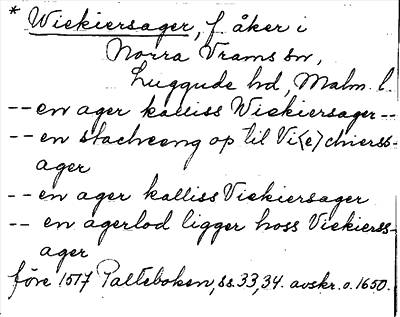 * Wiekiersager, f. åker i
Norra Vrams sn,
Luggude hd, Malm. l.
-- en ager kalliss Wiekiersager --
-- en stacheeng op til Vi(e)chierss-
ager
-- en ager kalliss Viekiersager
-- en agerlod ligger hoss Viekierss-
ager
före 1517 Palteboken, ss. 33, 34. avskr. o. 1650.